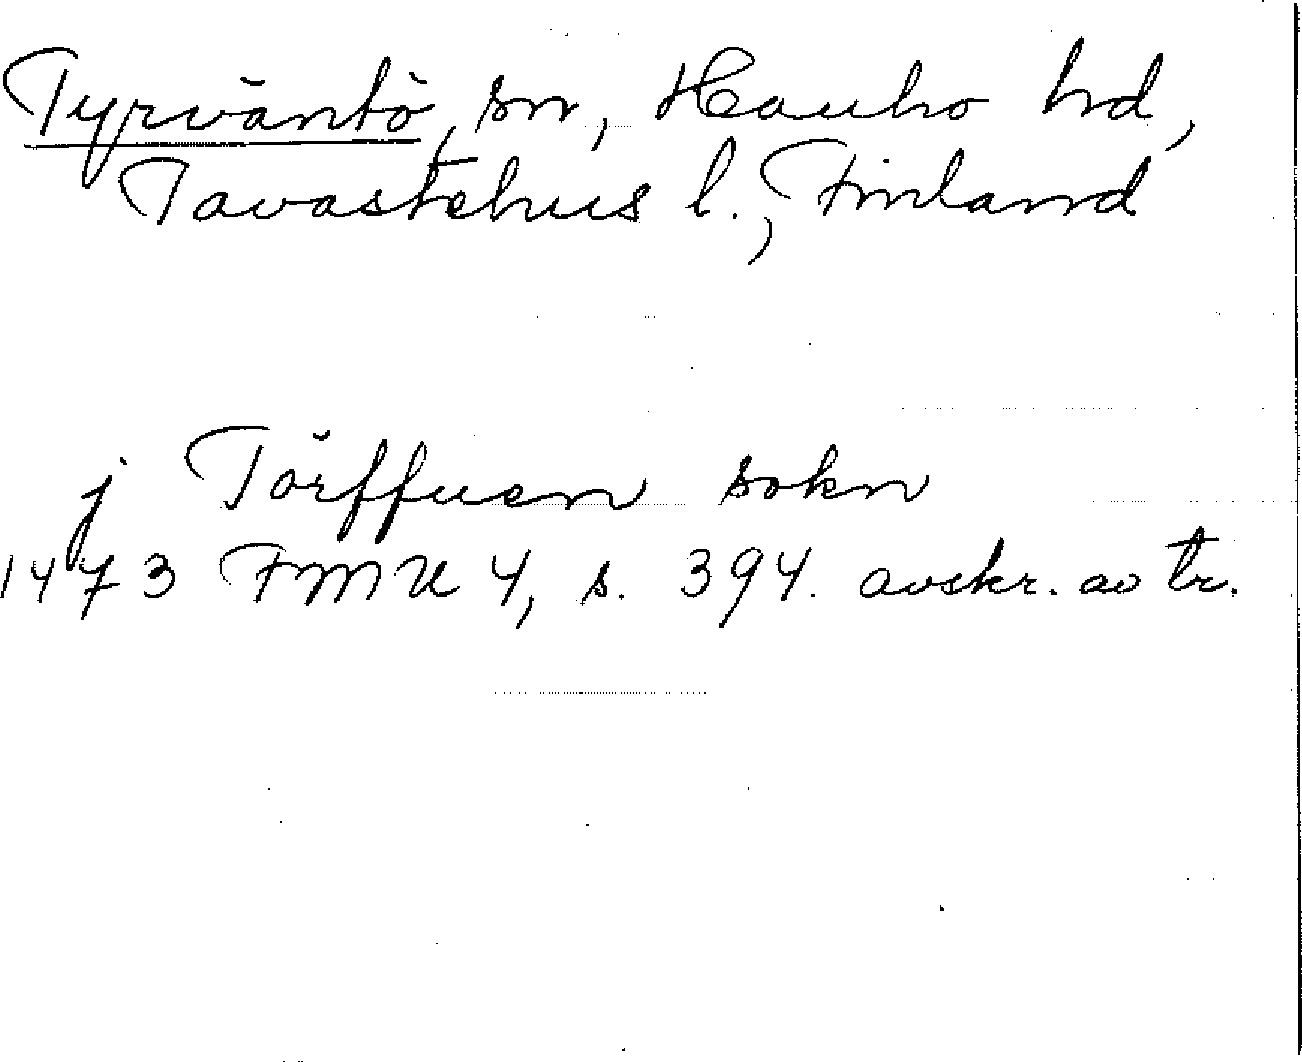 Tyrväntö, sn, Hauho hd,
Tavastehus l., Finland
j Törffuen sokn
1473 FMU 4, s. 394. avskr. av tr.